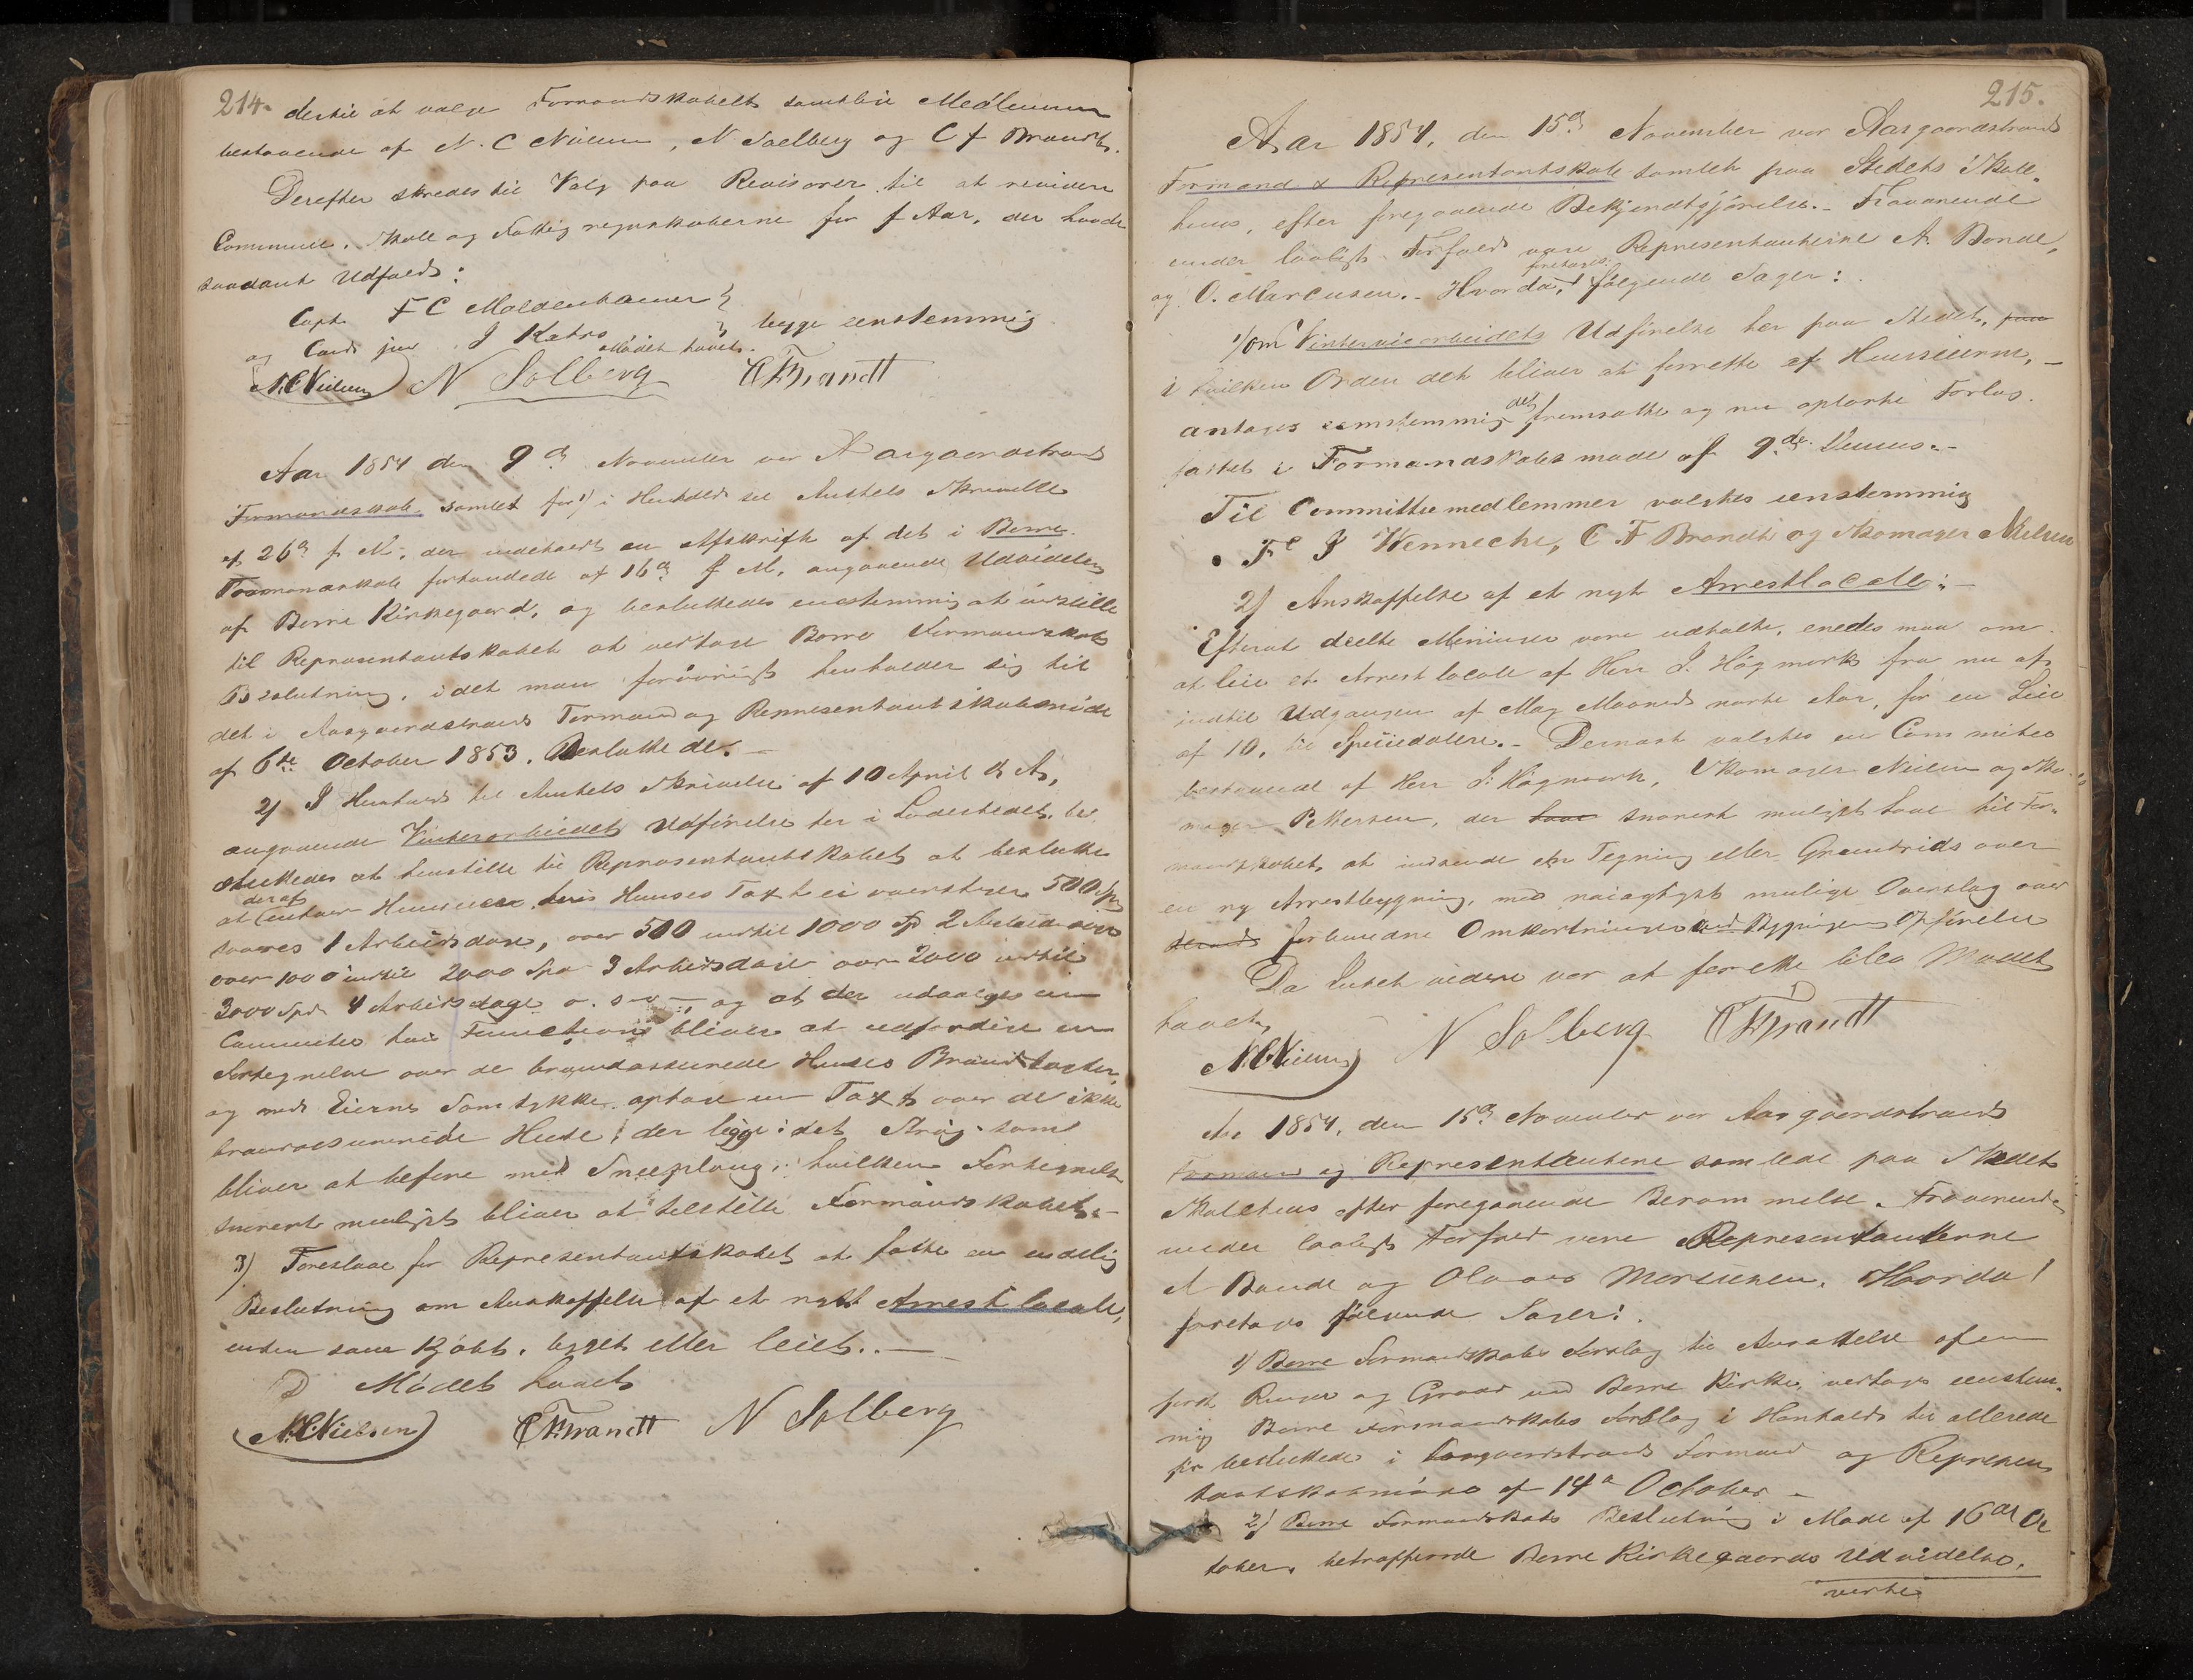 214.
dertil at valge Formandskabets samtlige Medlemmer
bestaaende af N. C Nielsen, N Soelberg og C F Brandt.
Derefter skredes til Valg paa Revisorer til at revidere
Commune, Skole og Fattig regnskaberne for f Aar, der havde
saadant Udfald:
Capt. F C Moldenhauer
og Cand jur. J Ketro begge eenstemmig
Mödet hævet.
N.C.Nielsen N Solberg CFBrandt
Aar 1854 den 9de November var Aasgaardstrands
Formandskab samlet for 1) i Henhold til Amtets Skrivelse
af 26de f. M., der indeholdt en Afskrift af det i Borre
Formandskab forhandlede af 16de f. M. angaaende Udvidelse
af Borre Kirkegaard, og besluttedes eenstemmig at indstille
til Repræsentantskabet at vedtage Borre Formandskabs
Beslutning, idet man forövrigt henholder sig til
det i Aasgaardstrands Formand og Representantskabsmöde
af 6te October 1853. Besluttede. —
2) I Henhold til Amtets Skrivelse af 10 April d. A.,
angaaende Vinterarbeidets Udförelse her i Ladestedet, be-
sluttedes at henstille til Repræsentantskabet at beslutte
at deraf enhver Huuseier, hvis Huuses Taxt ei overstiger 500 Spd
svares 1 Arbeidsdag, over 500 indtil 1000 Spd 2 Arbeidsdage
over 1000 indtil 2000 Spd 3 Arbeidsdage over 2000 indtil
3000 Spd. 4 Arbeidsdage o. s. v. —, og at der udvælges en
Committee hvis Function bliver at udfærdige en
Fortegnelse over de brandassurerede Huses Brandtaxter,
og med Eierne Samtykke optage en Taxt over de ikke
brandassurerede Huse, der ligge i det Strög som
bliver at befare med Sneeploug, hvilken Fortegnelse
snarest muligst bliver at tilstille Formandskabet. —
3) Foreslaae for Representantskabet at fatte en endelig
Beslutning om Anskaffelse af et nyt Arrestlocale,
enten som kjöbt, bygget eller leiet. —
Mödet hævet
N.C.Nielsen CFBrandt N Solberg
215.
Aar 1854, den 15de November var Aasgaardstrands
Formand & Representantskab samlet paa Stedets Skole-
huus, efter foregaaende Bekjendtgjörelse. – Fraværende
under lovligt Forfald vare Representanterne A. Bonde,
og O. Marcusen. – Hvorda foretoges fölgende Sager:
1) om Vinterveiarbeidets Udförelse her paa Stedet, paa
i hvilken Orden det bliver at forrette af Huuseierne, —
antages eenstemmig det fremsatte og nu oplæste Forlag
fattet i Formandskabsmöde af 9de Dennes. –
Til Committeemedlemmer valgtes eenstemmig
F J Wennecke, C F Brandt og Skomager Nielsen
2) Anskaffelse af et nyt Arrestlocale: —
Efterat deelte Meninger vare udtalte, enedes man om
at leie et Arrestlocale af Herr J. Högmark fra nu af
indtil Udgangen af May Maaned næste Aar, for en Leie
af 10, ti Speciedaler. – Dernæst valgtes en Committee
bestaaende af Herr J. Högmark, Skomager Nielsen og Sko-
mager Pettersen, der have snarest muligst have til For-
mandskabet at indsende en Tegning eller Grundrids over
en ny Arrestbygning, med nöiagtigst mulige Overslag over
forbundne Omkostninger ved Bygningens Opförelse
Da Intet videre var at forrette blev Mödet
hævet,
N.C.Nielsen N Solberg CFBrandt
Aar 1854, den 15de November var Aasgaardstrands
Formand og Representanterne samlede paa Stedets
Skolehuus efter foregaaende Berammelse. Fraværende
under lovligt Forfald vare Representanterne
A Bonde og Olaves Marcusen. Hvorda!
foretoges fölgende Sager:
1) Borre Formandskabs Forslag til Ansættelse af en
fast Ringer og Graver ved Borre Kirke, vedtoges eenstem-
mig Borre Formandskabs Forslag i Henhold til allerede
för besluttede i Aasgaardstrands Formand og Represen-
tantskabsmöde af 14de October –
2) Borre Formandskabs Beslutning i Möde af 16de Oc
tober, betræffende Borre Kirkegaards Udvidelse,